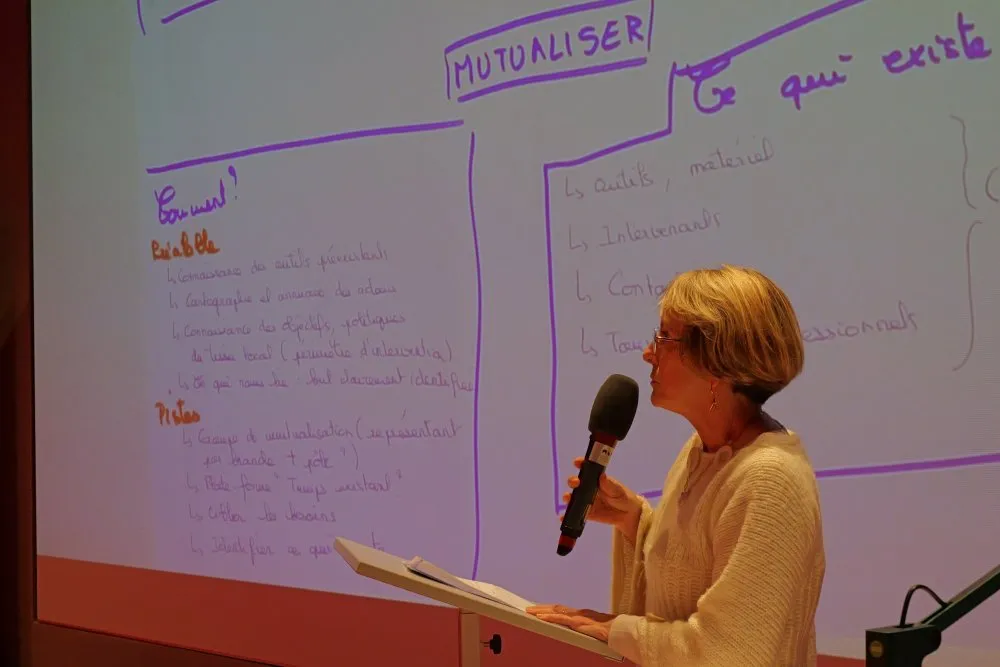 MUTUALISER
Ce qui existe
Comment ?
Préalable
↳ Connaissance des outils préexistants
↳ Cartographie et annuaire des acteurs
↳ Connaissance des objectifs, politiques
du tissu local (périmètre d'intervention)
↳ Ce qui nous lie : but clairement identifié
Pistes
↳ Groupe de mutualisation (représentant
par branche + pôle")
↳ Plate-forme "Temps
↳ Cibler les besoins
↳ Identifier ce qui
↳ Outils, matériel
↳ Intervenants
↳ Conta
↳ essionnels